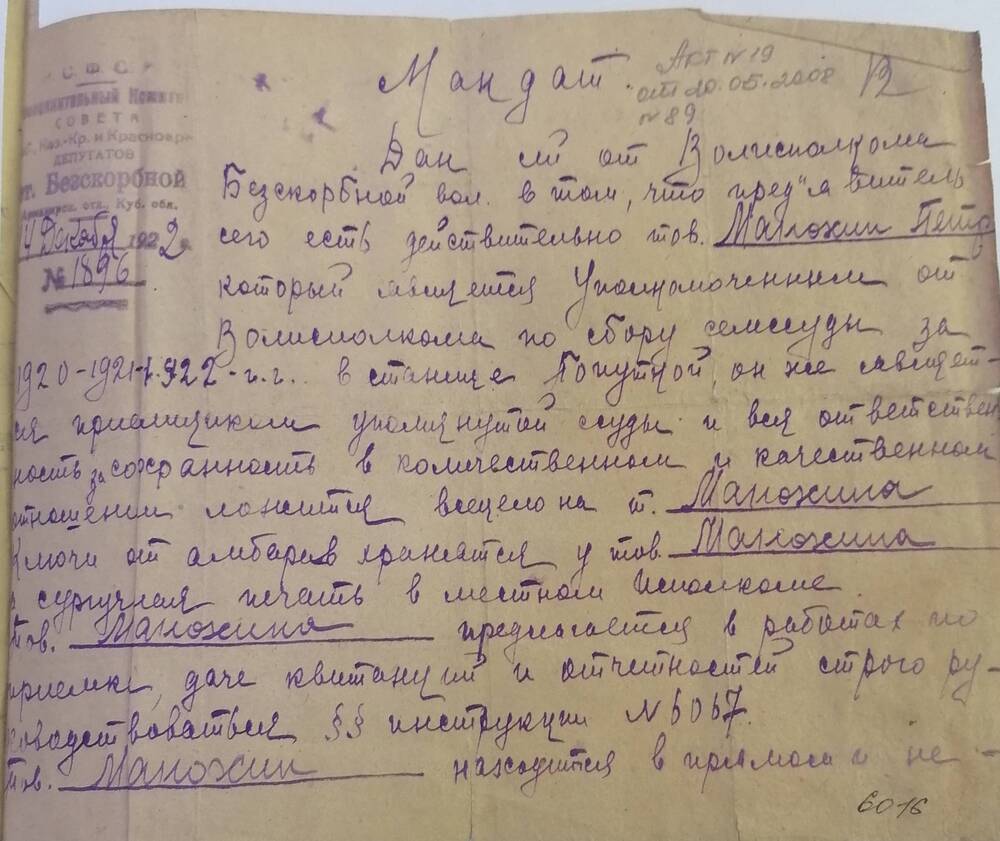 Р.С.Ф.С.Р.
Исполнительный Комитет
СОВЕТА
Каз.-Кр. и Красноар.
ДЕПУТАТОВ
ст. Безскорбной
Армавирск. отд., Куб. обл.
4 Декабря 1922 г.
№ 1896
Мандат.
Акт №19
от 20.05.2008
№89
Дан сей от Волисполкома
Безскорбной вол. в том, что пред"явитель
сего есть действительно тов. Малохин Петр
который является Уполномоченным от
Волисполкома по сбору семссуды за
1920-1921-1922-г.г.. в станице Попутной, он же являет-
ся приемщиком упомянутой ссуды и вся ответствен
ность за сохранность в количественном и качественном
отношении ложится всецело на т. Малохина
Ключи от амбаров хранятся у тов. Малохина
а сургучная печать в местном Исполкоме.
Тов. Малохина предлагается в работах по
приемке, даче квитанций и отчетностей строго ру-
ководствоваться §§ инструкции №6067.
Тов. Малохин находится в прямом и не-
6016